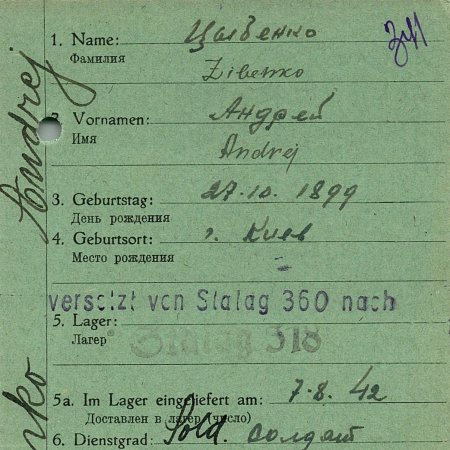 1. Name: Цыбенко
Фамилия
Zibenko
2. Vornamen: Андрей
Имя
Andrej
3. Geburtstag: 27.10.1899
День рождения
4. Geburtsort: г. Киев
Место рождения
versetzt von Stalag 360 nach
5. Lager:
Лагер
Stalag 318
5a. Im Lager eingeliefert am: 7.8.42
Доставлен в лагер (число)
6. Dienstgrad: Sold. солдат
Andrej
nko